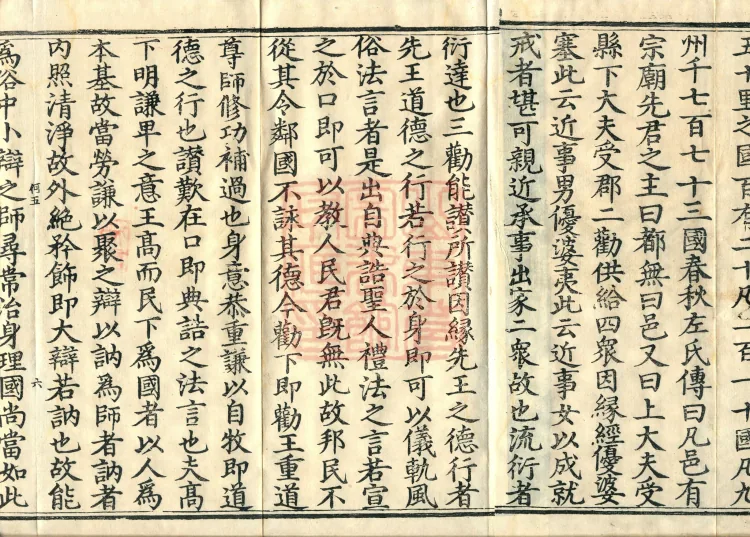 五十里之國百有二十凡二百一十國凡九
州千七百七十三國春秋左氏傳曰凡邑有
宗廟先君之主曰都無曰邑又曰上大夫受
縣下大夫受郡二勸供給四衆因緣經優婆
塞此云近事男優婆夷此云近事女以成就
戒者堪可親近承事出家二衆故也流衍者
衍達也三勸能讃所讃因緣先王之德行者
先王道德之行若行之於身即可以儀軌風
俗法言者是出自典誥聖人禮法之言若宣
之於口即可以教人民君既無此故邦民不
從其令鄰國不詠其德今勸下即勸王重道
尊師修功補過也身意恭重謙以自牧即道
德之行也讃歎在口即典誥之法言也夫高
下明謙卑之意王高而民下爲國者以人爲
本基故當勞謙以聚之辯以訥爲師者訥者
内照清淨故外絶矜飾即大辯若訥也故能
柯五 六
爲俗中小辯之師尋常治身理國尚當如此